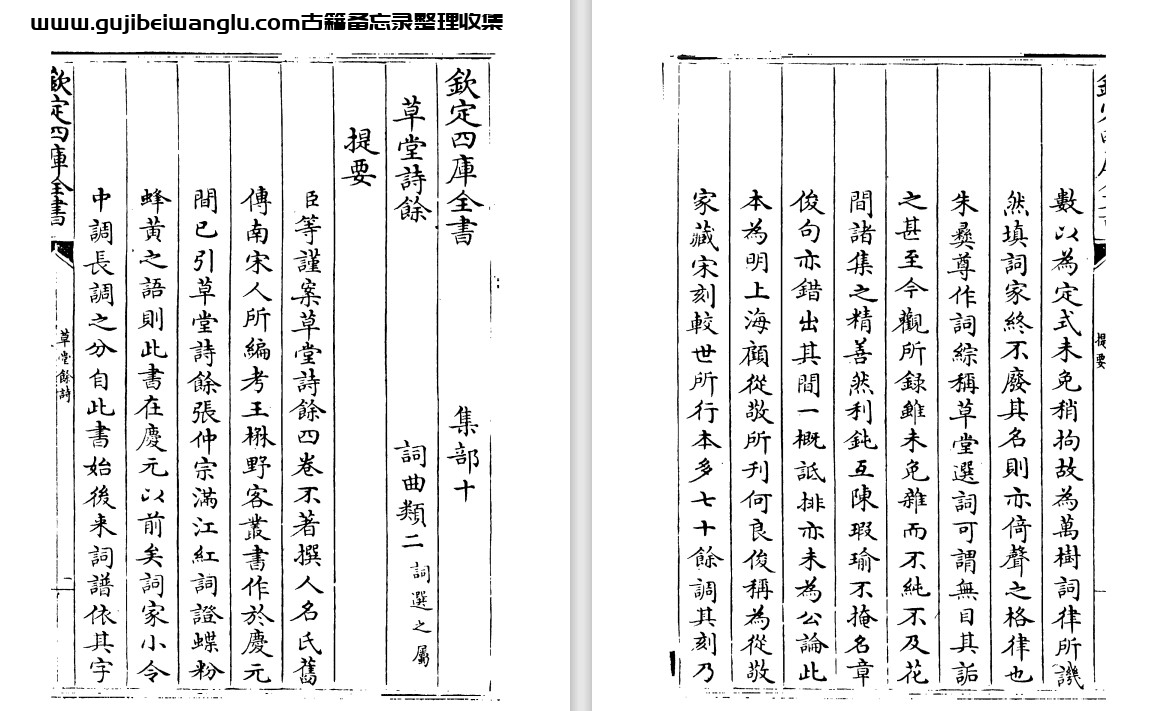 www.gujibeiwanglu.com古籍备忘录整理收集
欽定四庫全書　集部十
草堂詩餘　詞曲類二詞選之屬
提要
臣等謹案草堂詩餘四卷不著撰人名氏舊
傳南宋人所編考王楙野客叢書作於慶元
間已引草堂詩餘張仲宗滿江紅詞證蝶粉
蜂黄之語則此書在慶元以前矣詞家小令
中調長調之分自此書始後来詞譜依其字
欽定四庫全書
草堂餘詩
二
欽定四庫全書
提要
數以為定式未免稍拘故為萬樹詞律所譏
然填詞家終不廢其名則亦倚聲之格律也
朱彜尊作詞綜稱草堂選詞可謂無目其詬
之甚至今觀所録雖未免雜而不純不及花
間諸集之精善然利鈍互陳瑕瑜不掩名章
俊句亦錯出其間一概詆排亦未為公論此
本為明上海顧從敬所刊何良俊稱為從敬
家藏宋刻較世所行本多七十餘調其刻乃